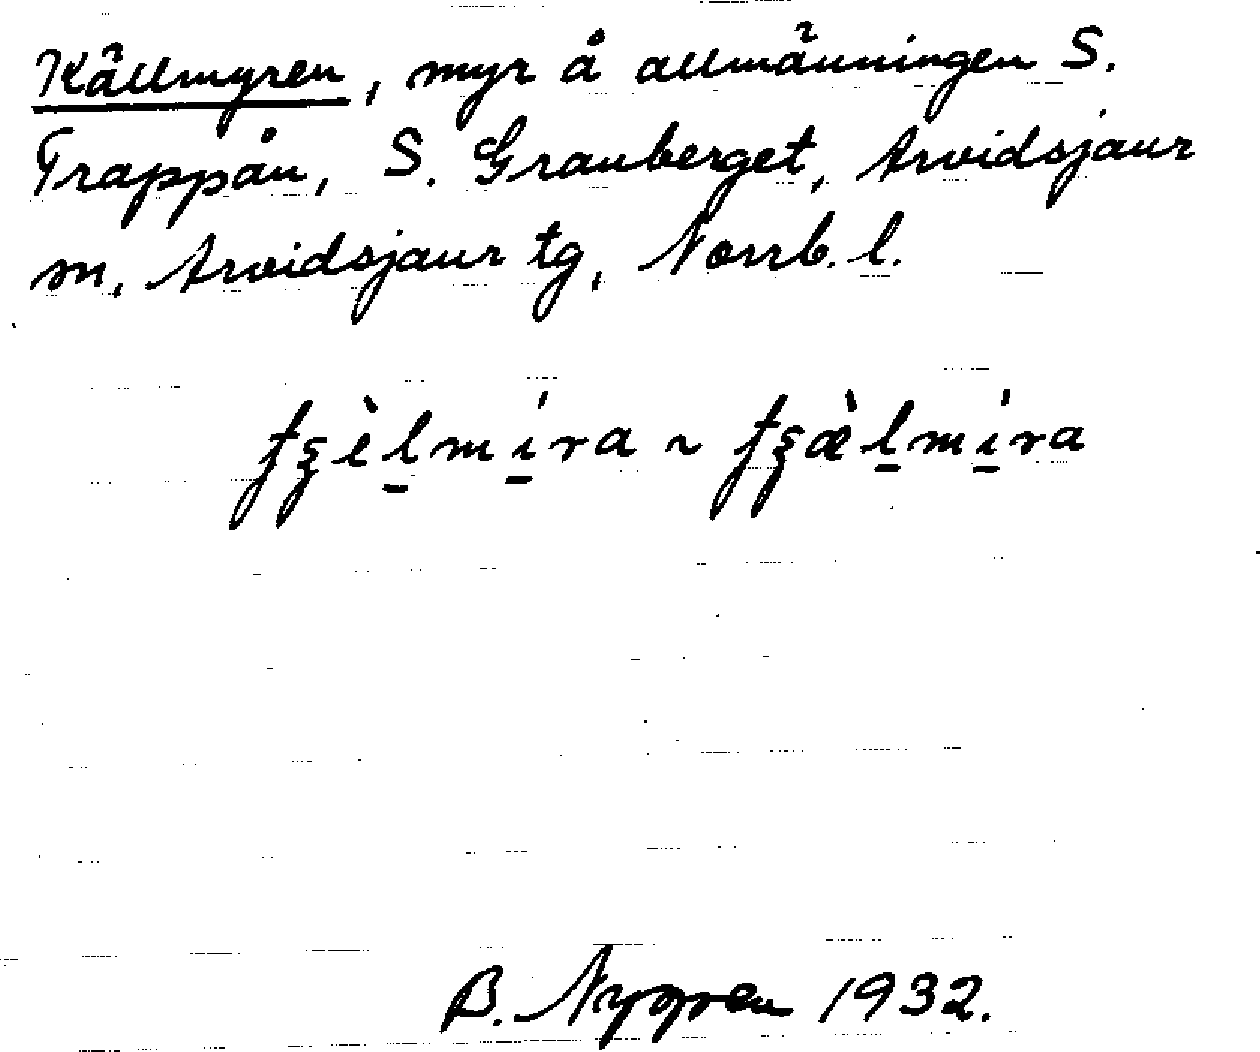 Källmyren, myr å allmänningen S.
Trappån, S. Granberget, Arvidsjaur
m, Arvidsjaur tg, Norrb. l.
ʈʂèl̲mí̲ra ~ ʈʂæ̀l̲mí̲ra
B. Nygren 1932.